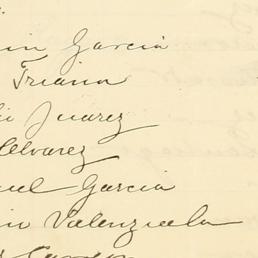 in Garcia
Triana
Juarez
Alvarez
uel Garcia
in Valenzuela